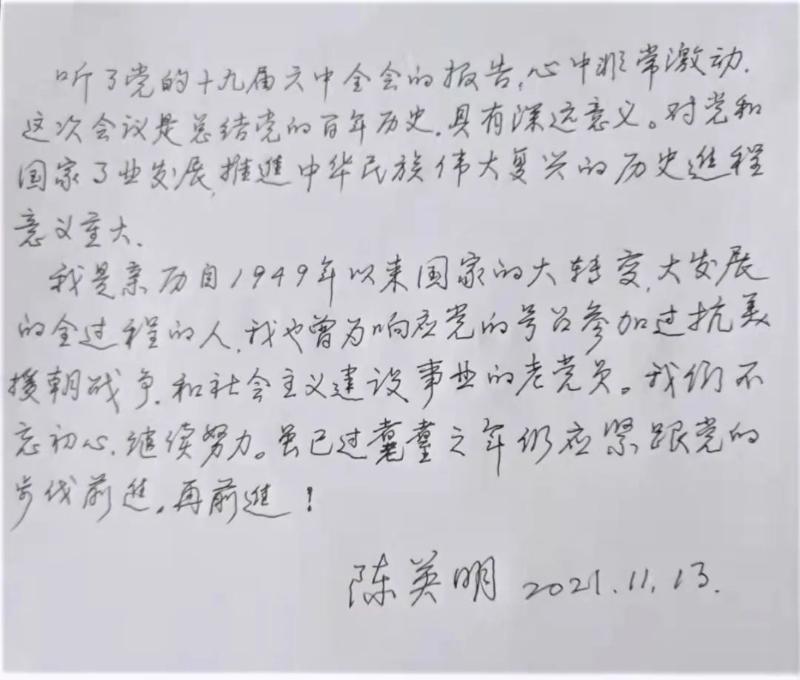 听了党的十九届六中全会的报告，心中非常激动.
这次会议是总结党的百年历史.具有深远意义。对党和
国家了业发展,推進中华民族伟大复兴的历史進程
意义重大.
我是亲历自1949年以来国家的大转变,大发展
的全过程的人,我也曾为响应党的号召参加过抗美
援朝战争,和社会主义建设事业的老党员。我们不
忘初心.继续努力。虽已过耄耋之年仍应紧跟党的
步伐前進,再前進！
陈英明 2021.11.13.